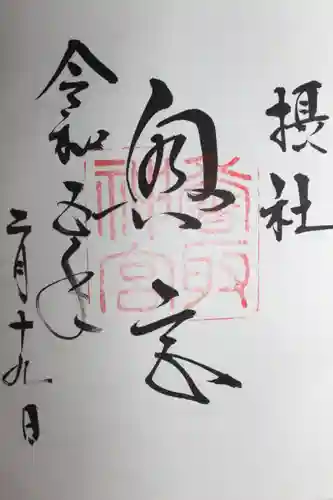 摂社
奥宮
香取
神宮
令和五年
二月十九日